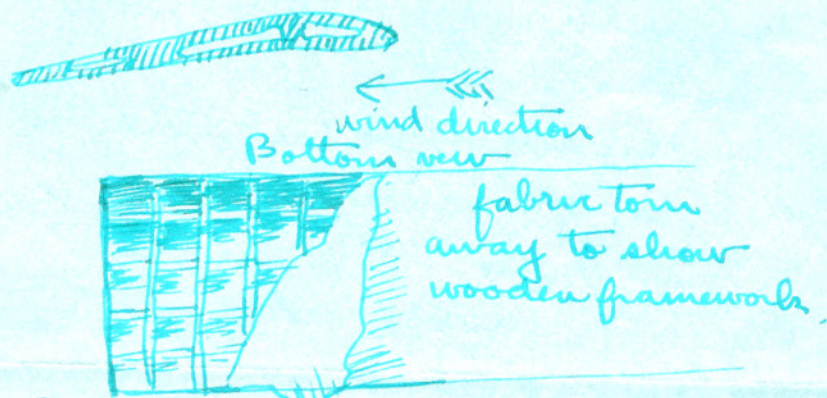 wind direction
Bottom view
fabric torn
away to show
wooden framework.